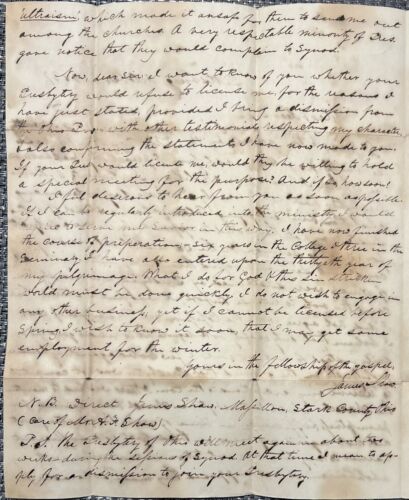 ultraism, which made it unsafe for them to send me out
among the churches. A very respectable minority of Pres.
gave notice that they would complain to Synod.
Now, dear son I want to know of you whether your
Presbytery would refuse to license me, for the reasons I
have just stated, provided I bring a dismission from
this Pres. with other testimonials respecting my character
& also confirming the statements I have now made to you.
If your Pres would license me, would they be willing to hold
a special meeting for the purpose? And if so how soon?
I feel desirous to hear from you as soon as possible.
If I can be regularly introduced into the ministry, I would
in this way. I have now finished
the course of preparation, six years in the College & three in the
Seminary. I have also entered upon the thirtieth year of
my pilgrimage. What I do for God & the
world must be done quickly. I do not wish to engage in
any other business, yet if I cannot be licensed before
Spring, I wish to know it soon, that I may get some
employment for the winter.
yours in the fellowship of the gospel,
James Shaw.
N.B. Direct James Shaw, Massillon, Stark County, Ohio
(Care of Shaw)
P.S. the Presbytery of this will meet again in about two
weeks during the sessions of Synod. At that time I mean to ap-
ply for a dismission to join your Presbytery.